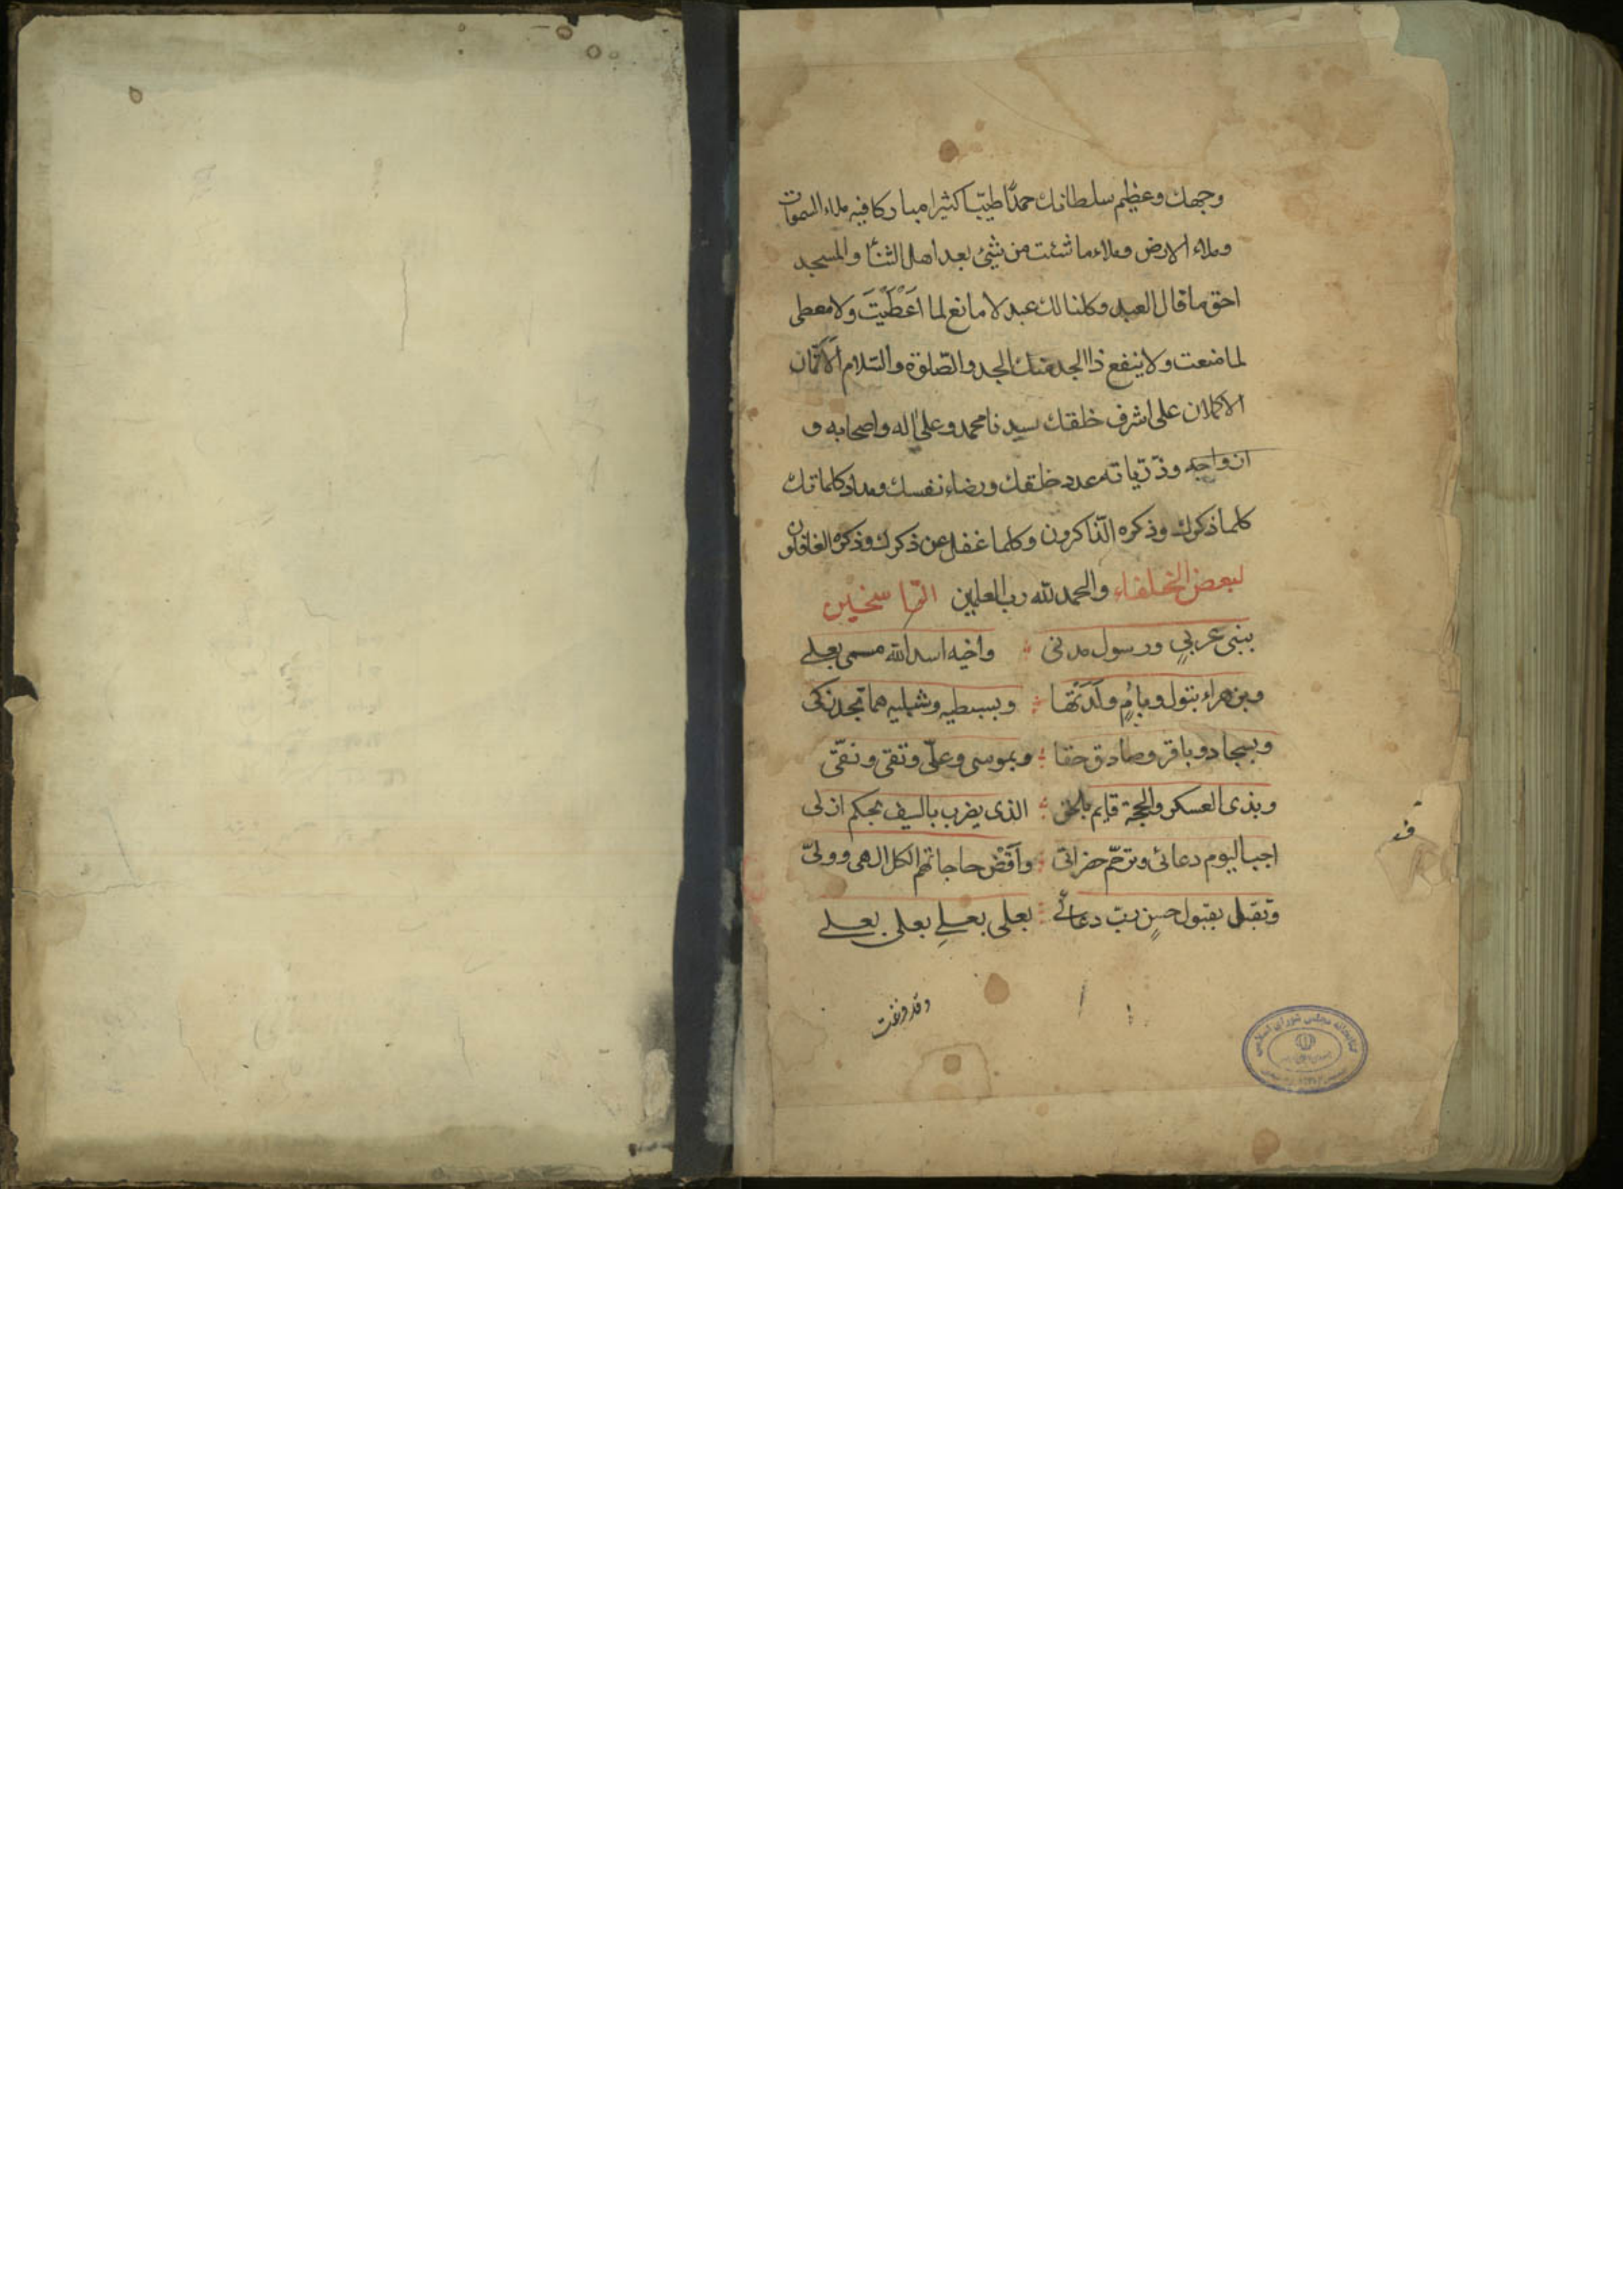 وجهك وعظيم سلطانك حمدًا طيّبا كثيرا مباركا فيه ملاء السموات
وملاء الارض وملاء ما شئت من شيئ بعد اهل الثنآ والمسجد
احق ما قال العبد وكلنا لك عبد لا مانع لما اَعْطَيْتَ ولا معطى
لما منعت ولا ينفع ذا الجد منك الجد والصّلوة والسّلام الاَتمّان
الاكملان على اشرف خلقك سيدنا محمد وعلى اله واصحابه و
ازواجه وذرّياته عدد خلقك ورضاء نفسك ومداد كلماتك
كلما ذكرك وذكره الذّاكرون وكلما غفل عن ذكرك وذكره الغافلون
لبعض الخلفاء والحمد لله رب العلمين
بنبى عربىٍ ورسول مدنى واخيه اسد الله مسمى بعلى
وبزهراء بتول وبأمٍ ولَدَتْها وبسبطيه وشبليه هما نجد زكى
وبسجاد وباقر وصادق حقا وبموسى وعلىّ وتقى ونقىّ
وبذى العسكر والحجة قايم بالحق الذى يضرب بالسيف بحكم ازلى
اجب اليوم دعائى وترحّم واَقْض حاجاتهم الكل الهى وولىّ
وتقبل بقبول حسنٍ ربّ دعائى بعلى بعلىٍ بعلى بعلى
وقد فرغت
كتابخانه مجلس شوراى اسلامى